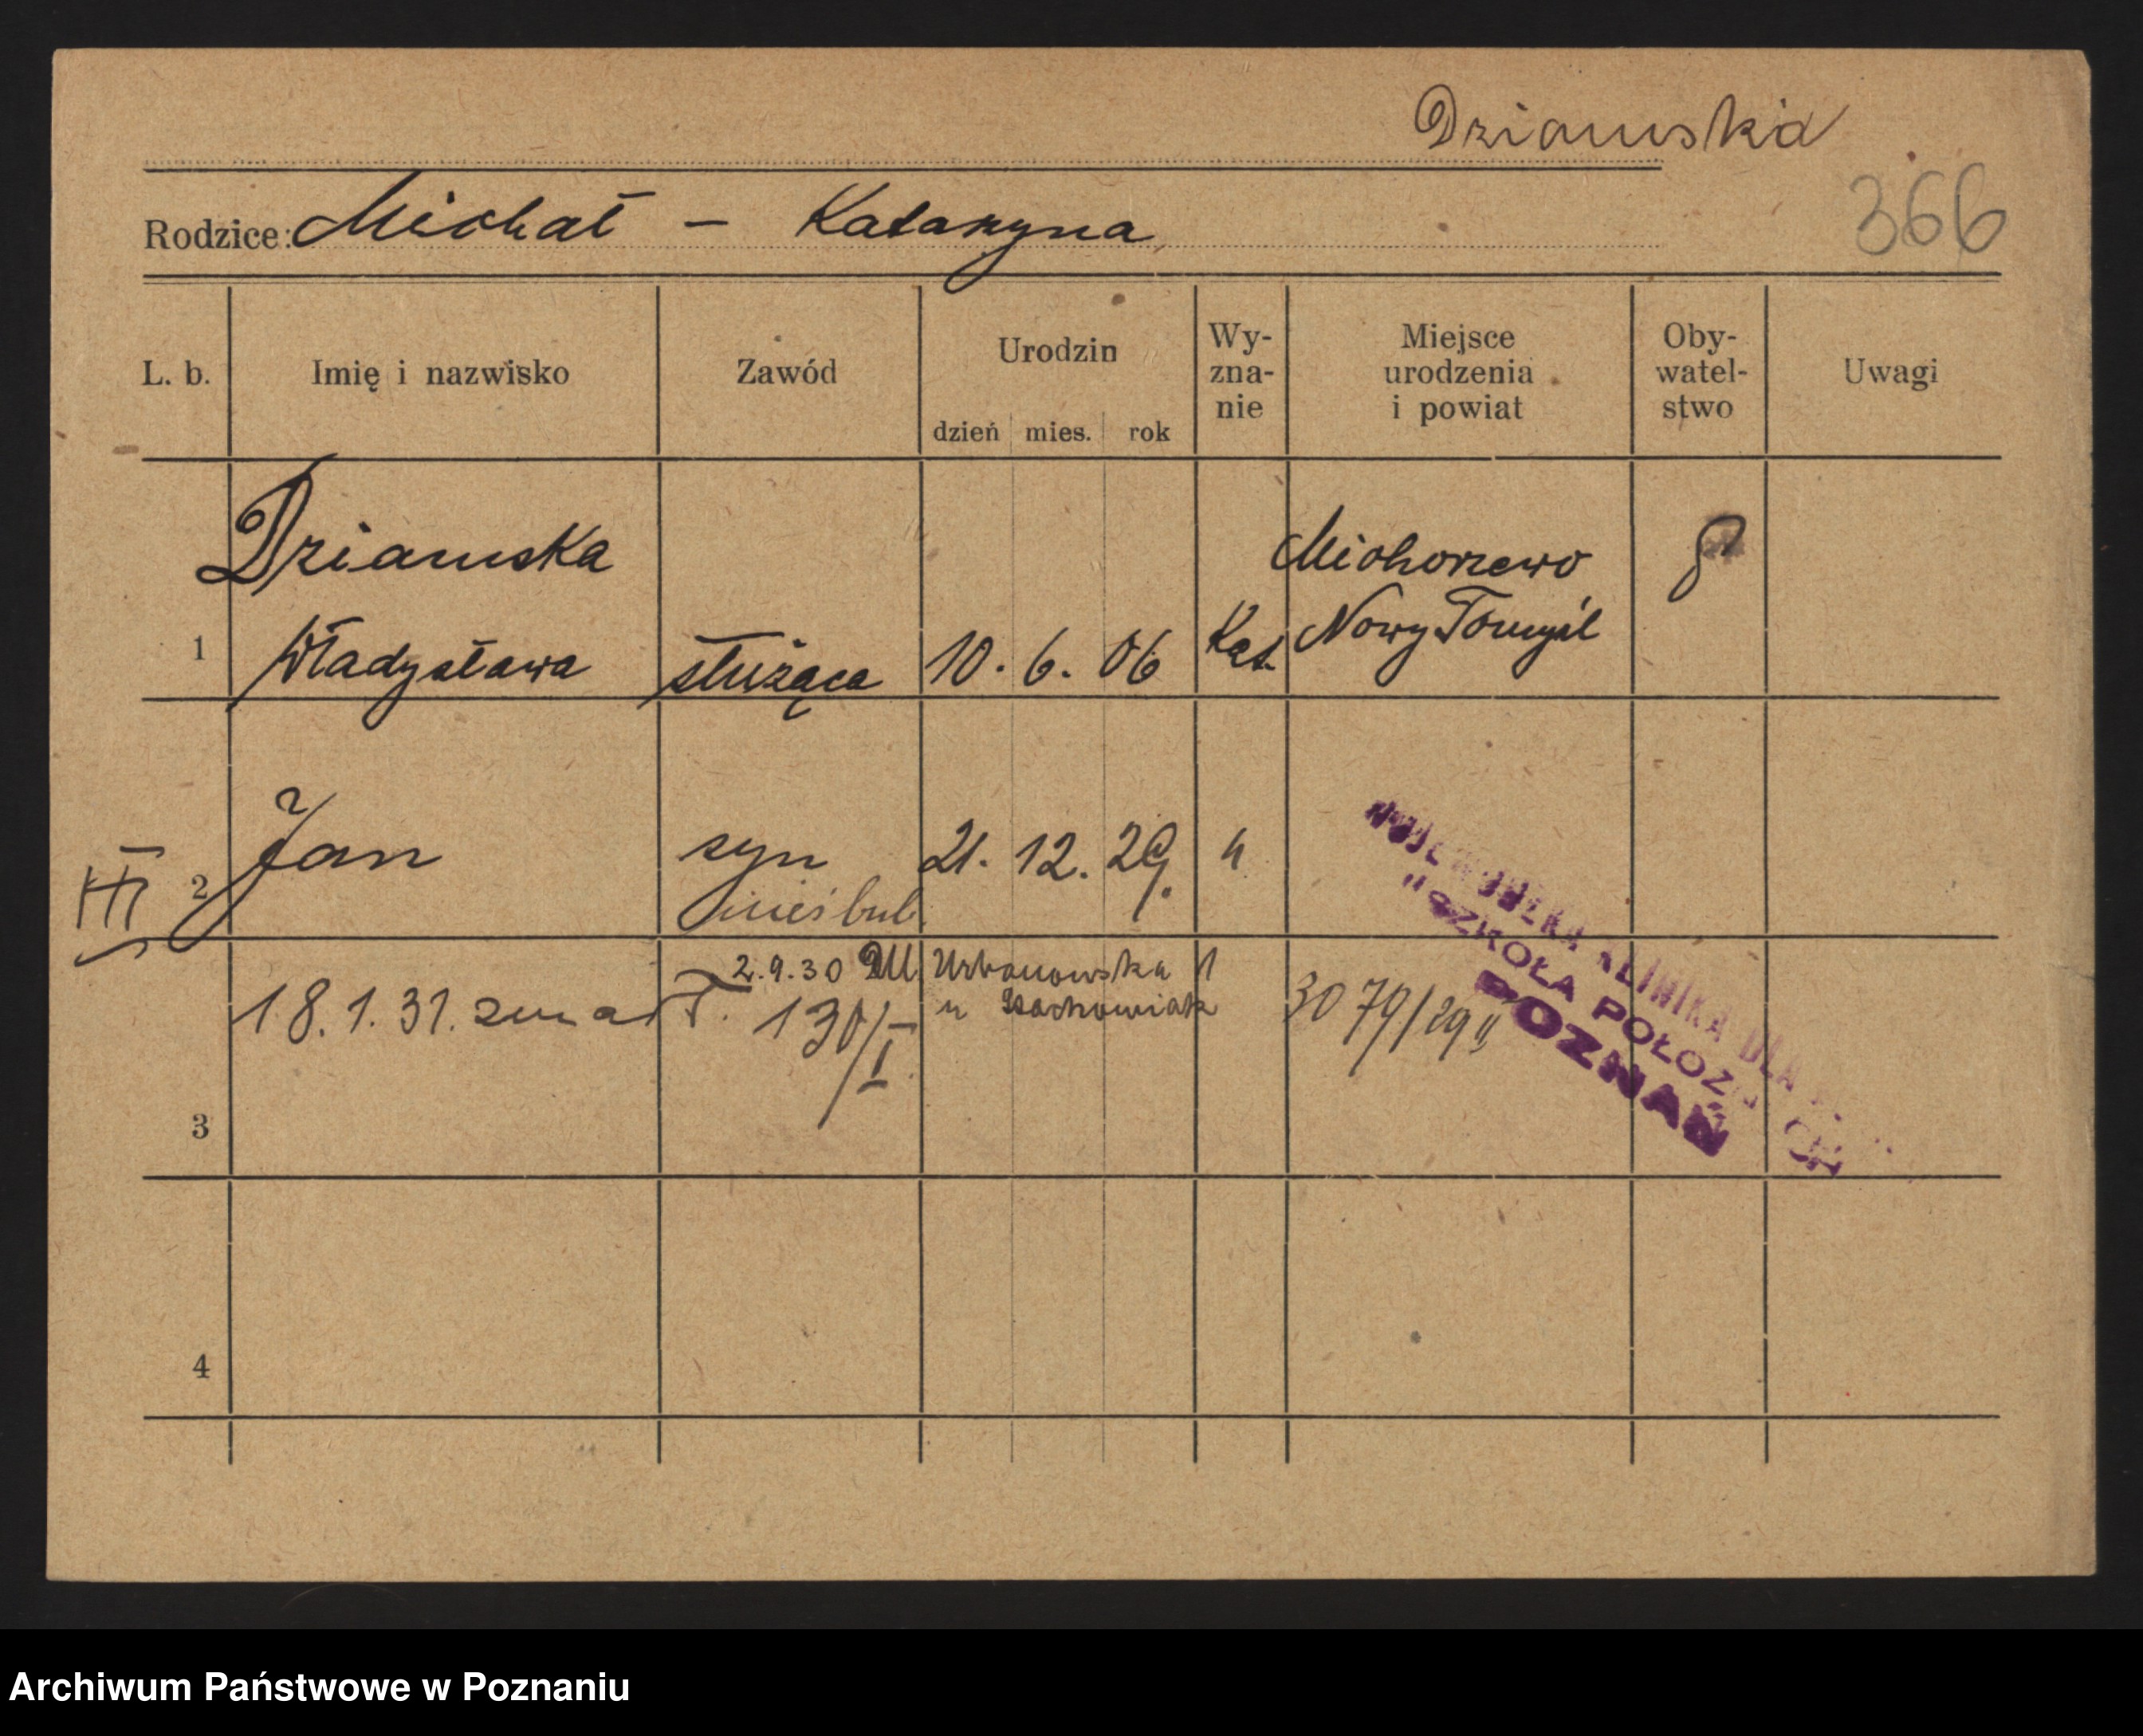 Dziamska
366
Rodzice: Michał – Katarzyna
L. b. Imię i nazwisko Zawód Urodzin dzień mies. rok Wy-zna-nie Miejsce urodzenia i powiat Oby-watel-stwo Uwagi
Dziamska Michorzewo
1 Władysława służąca 10. 6. 06 Kat. Nowy Tomyśl
2 Jan syn 21. 12. 29. "
nieślub
2.9.30 Urbanowska 1
18.1.31. zmarł. 130/I u 3079/29 II
KLINIKA DLA
SZKOŁA POŁOŻ CH
POZNAŃ
3
4
Archiwum Państwowe w Poznaniu